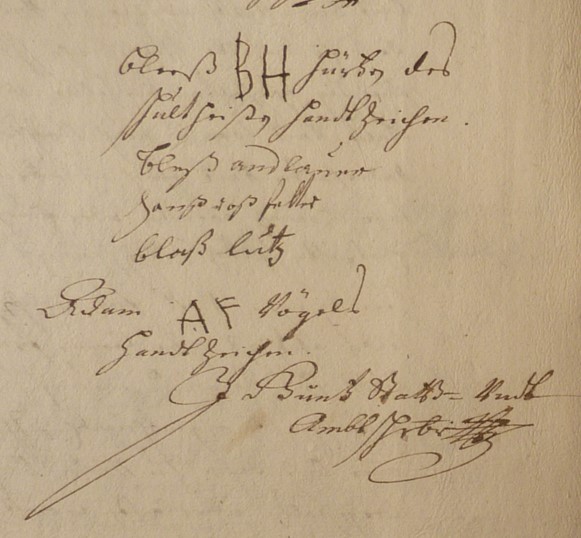 bleeß BH hürsten des
schultheißen handtzeichen.
bleß andlauer
hanß
blaß lutz
Adam AF Vögels
handtzeichen.
Statt= Undt
Ambtschrbr